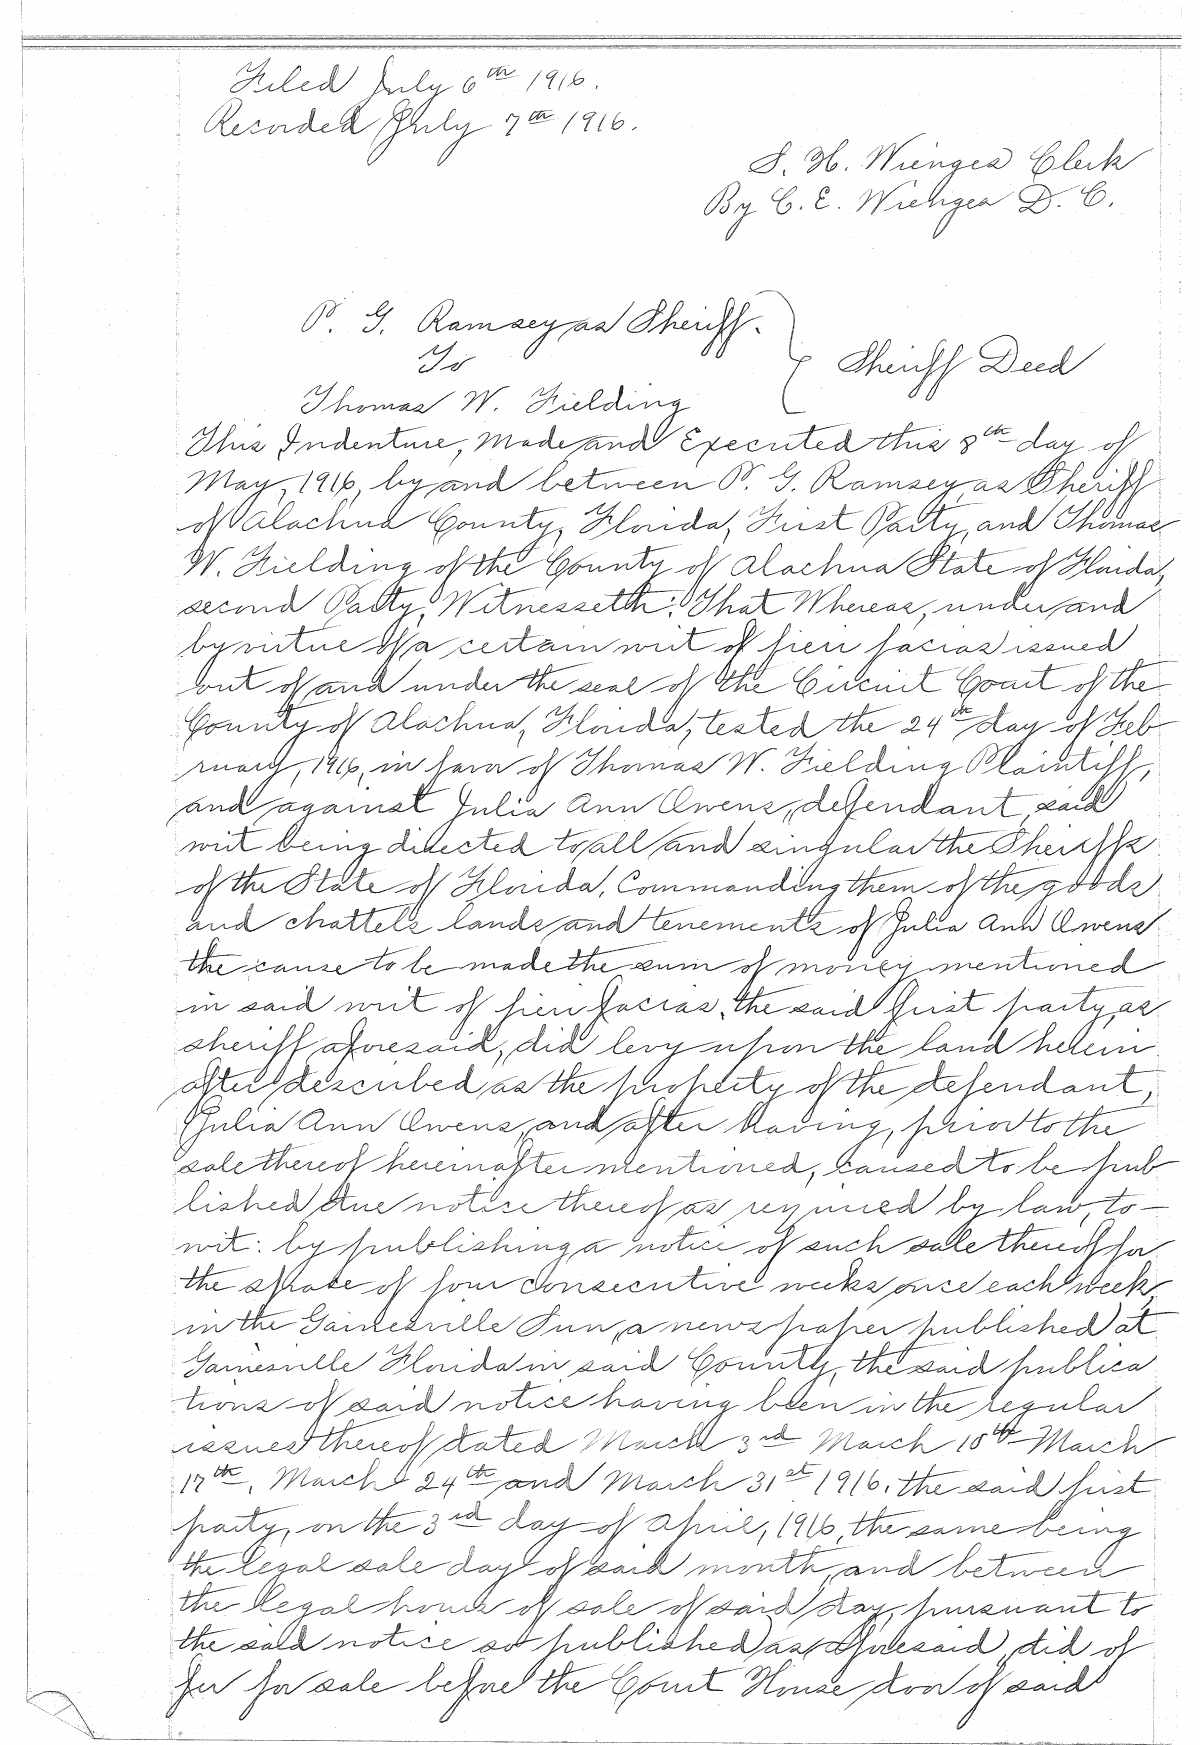 Filed July 6th 1916.
Recorded July 7th 1916.
S. H. Wienges Clerk
By C. E. Wienges D. C.
P. G. Ramsey as Sheriff.
To
Sheriff Deed
Thomas W. Fielding
This Indenture, Made and Executed this 8th day of
May, 1916, by and between P. G. Ramsey, as Sheriff
of Alachua County, Florida, First Party, and Thomas
W. Fielding of the County of Alachua State of Florida,
second Party, Witnesseth: That Whereas, under and
by virtue of a certain writ of fieri facias issued
out of and under the seal of the Circuit Court of the
County of Alachua, Florida, tested the 24th day of Feb
ruary, 1916, in favor of Thomas W. Fielding Plaintiff,
and against Julia Ann Owens, defendant, said
writ being directed to all and singular the Sheriffs
of the State of Florida, Commanding them of the goods
and chattels lands and tenements of Julia Ann Owens
the cause to be made the sum of money mentioned
in said writ of fieri facias, the said first party, as
sheriff aforesaid, did levy upon the land herein
after described as the property of the defendant,
Julia Ann Owens, and after having, prior to the
sale thereof hereinafter mentioned, caused to be pub
lished due notice thereof as required by law, to-
wit: by publishing a notice of such sale thereof for
the space of four consecutive weeks, once each week,
in the Gainesville Sun, a newspaper published at
Gainesville Florida in said County, the said publica
tions of said notice having been in the regular
issues thereof dated March 3rd March 10th March
17th, March 24th and March 31st 1916. the said first
party, on the 3rd day of April, 1916, the same being
the legal sale day of said month, and between
the legal hours of sale of said day, pursuant to
the said notice so published as aforesaid, did of
fer for sale before the Court House door of said